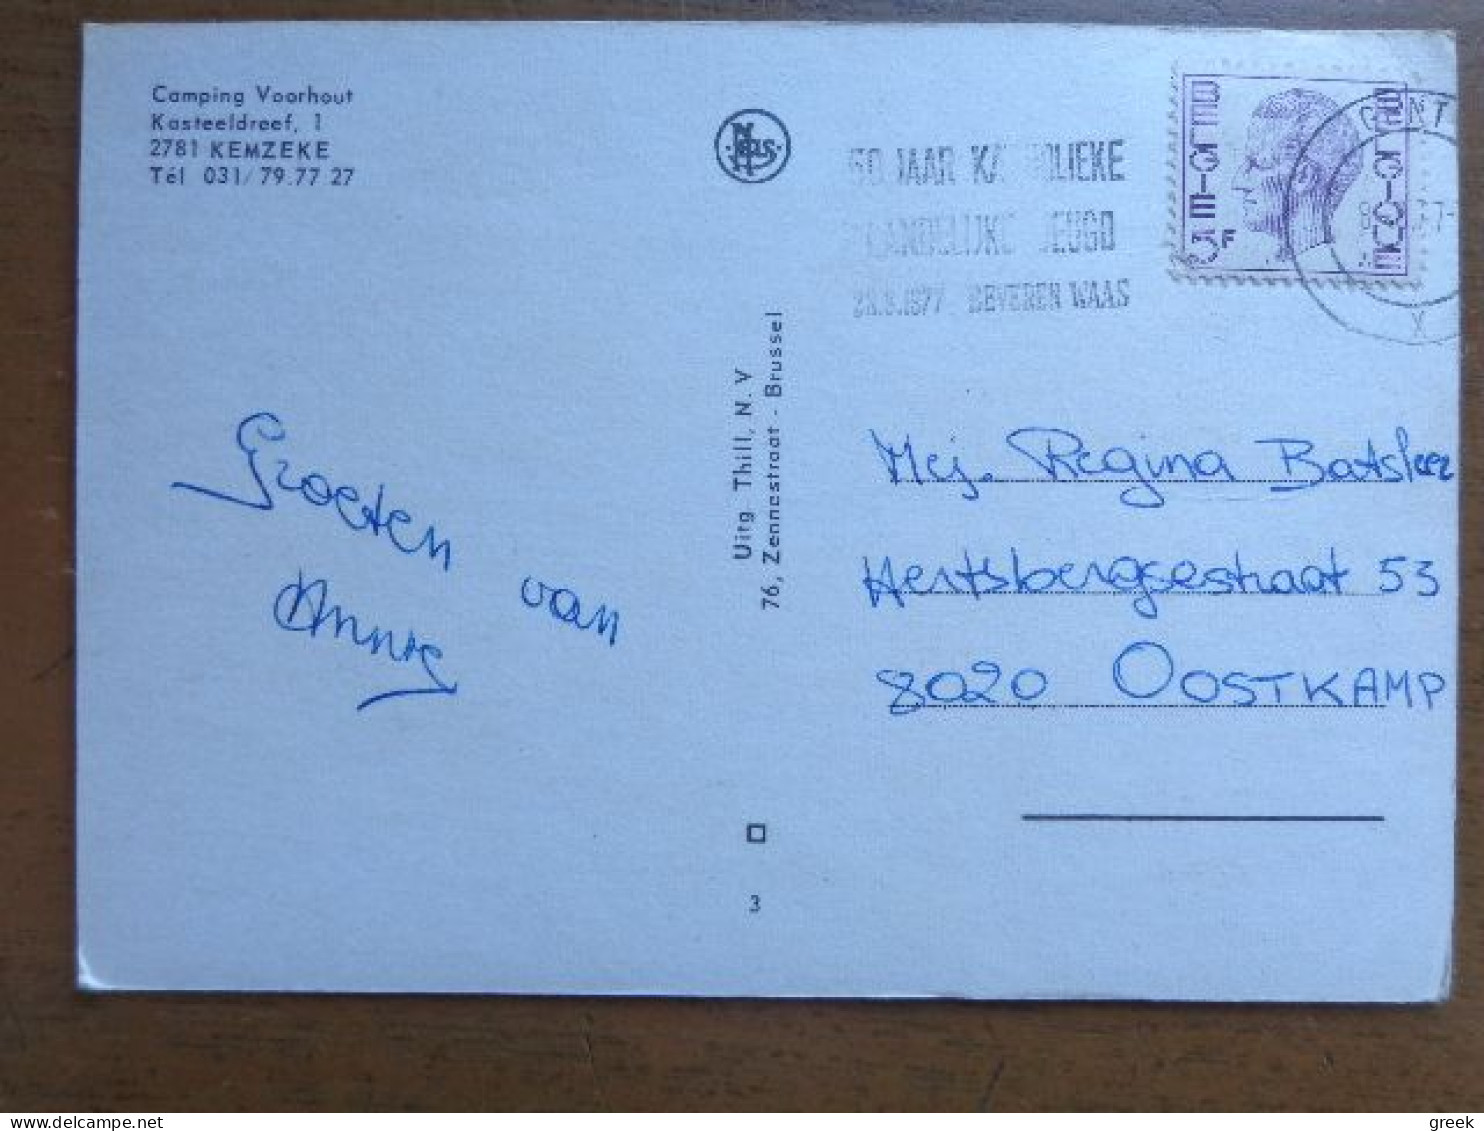 Camping Voorhout
Kasteeldreef, 1
2781 KEMZEKE
Tél 031/79.77 27
Nels
50 JAAR KATHOLIEKE
LANDELIJKE JEUGD
28.8.1977 BEVEREN WAAS
BELGIE
BELGIQUE
5F
GENT
X
Groeten van
Annie
Uitg Thill, N. V
76, Zennestraat - Brussel
Mej. Regina Batsleer
Hertsbergsestraat 53
8020 OOSTKAMP
3
greek